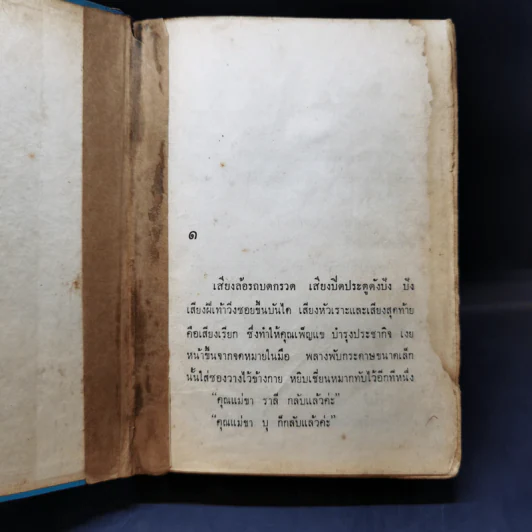 ๑
เสียงล้อรถบดกรวด เสียงปิดประตูดังปัง ปัง
เสียงฝีเท้าวิ่งซอยขึ้นบันได เสียงหัวเราะและเสียงสุดท้าย
คือเสียงเรียก ซึ่งทำให้คุณเพ็ญแข บำรุงประชากิจ เงย
หน้าขึ้นจากจดหมายในมือ พลางพับกระดาษขนาดเล็ก
นั้นใส่ซองวางไว้ข้างกาย หยิบเชี่ยนหมากทับไว้อีกทีหนึ่ง
“คุณแม่ขา ราลี กลับแล้วค่ะ”
“คุณแม่ขา บุ ก็กลับแล้วค่ะ”